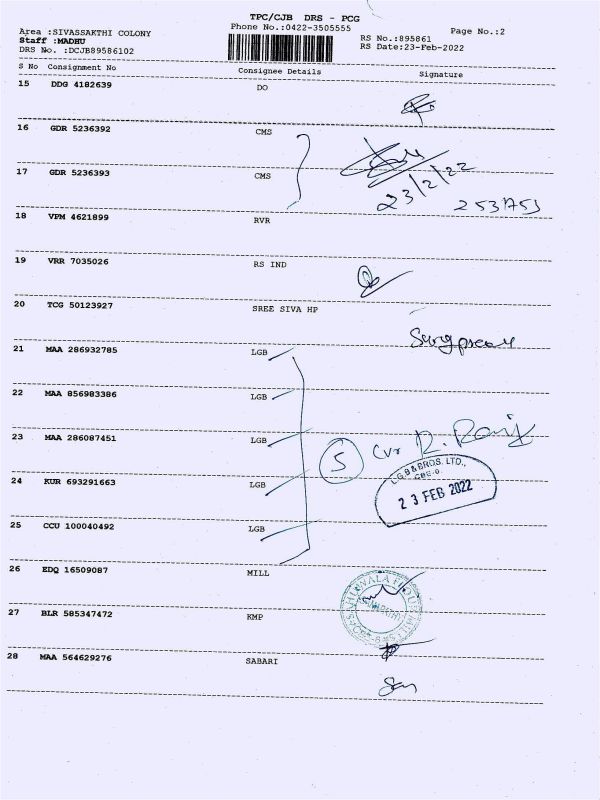 TPC/CJB DRS - PCG
Area :SIVASSAKTHI COLONY Phone No.:0422-3505555 Page No.:2
Staff :MADHU RS No.:895861
DRS No. :DCJB89586102 RS Date:23-Feb-2022
S No Consignment No Consignee Details Signature
15 DDG 4182639 DO
16 GDR 5236392 CMS
17 GDR 5236393 CMS
23/2/22
253753
18 VPM 4621899 RVR
19 VRR 7035026 RS IND
20 TCG 50123927 SREE SIVA HP
21 MAA 286932785 LGB
22 MAA 856983386 LGB
23 MAA 286087451 LGB
5
L.G.B & BROS. LTD.,
CBE-6.
23 FEB 2022
24 KUR 693291663 LGB
25 CCU 100040492 LGB
26 EDQ 16509087 MILL
27 BLR 585347472 KMP
28 MAA 564629276 SABARI